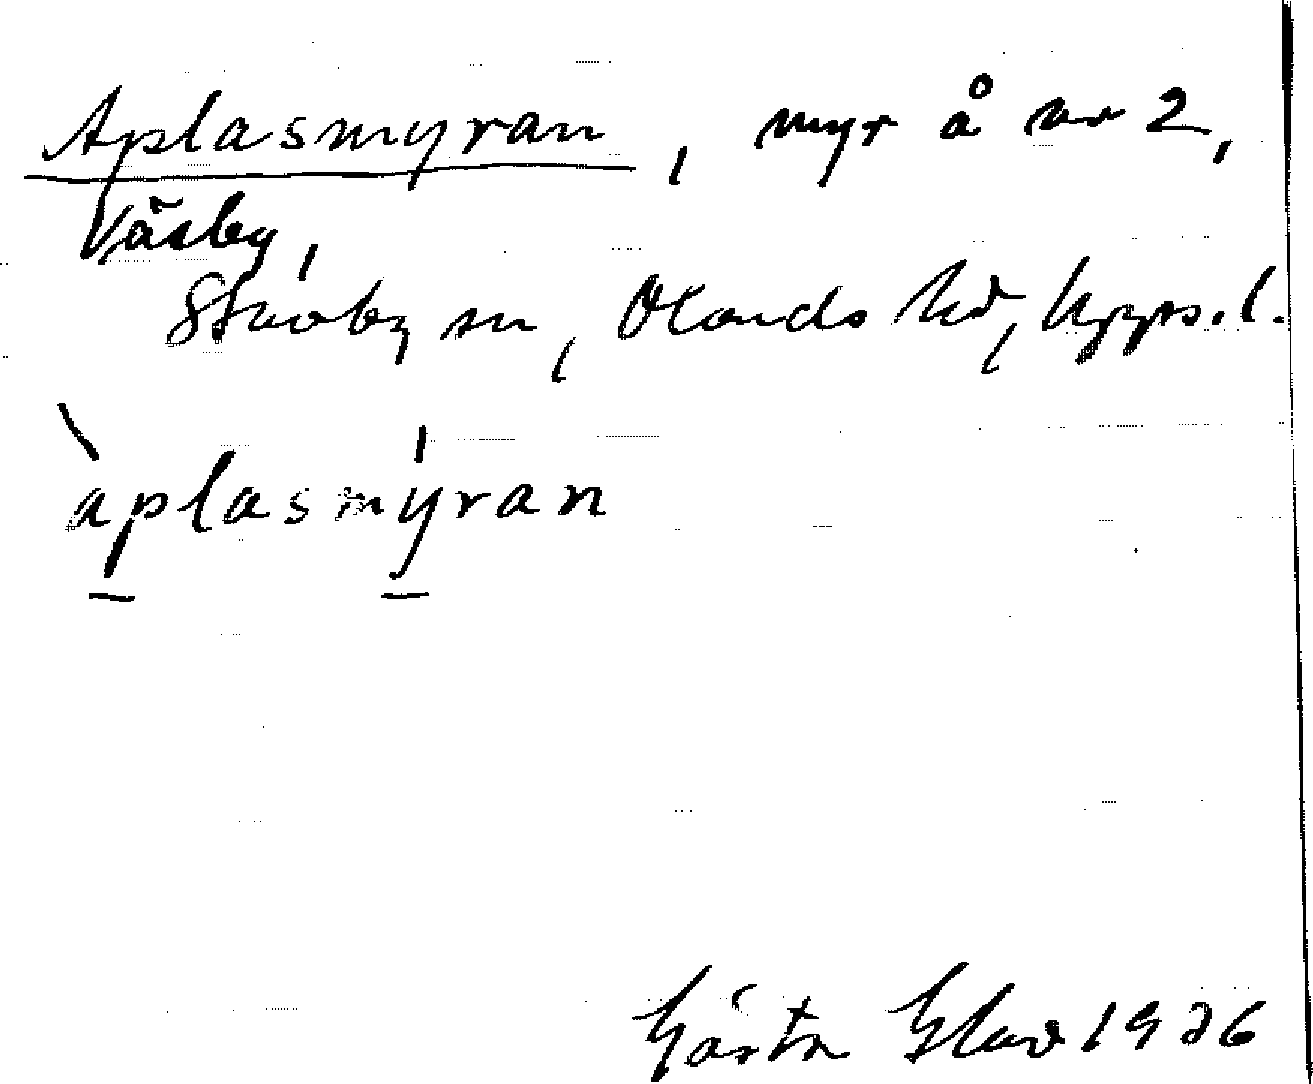 Aplasmyran, myr å nr 2,
Väsby,
Skäfby sn, Olands hd, Upps. l.
aplasmyran
Gösta 1936